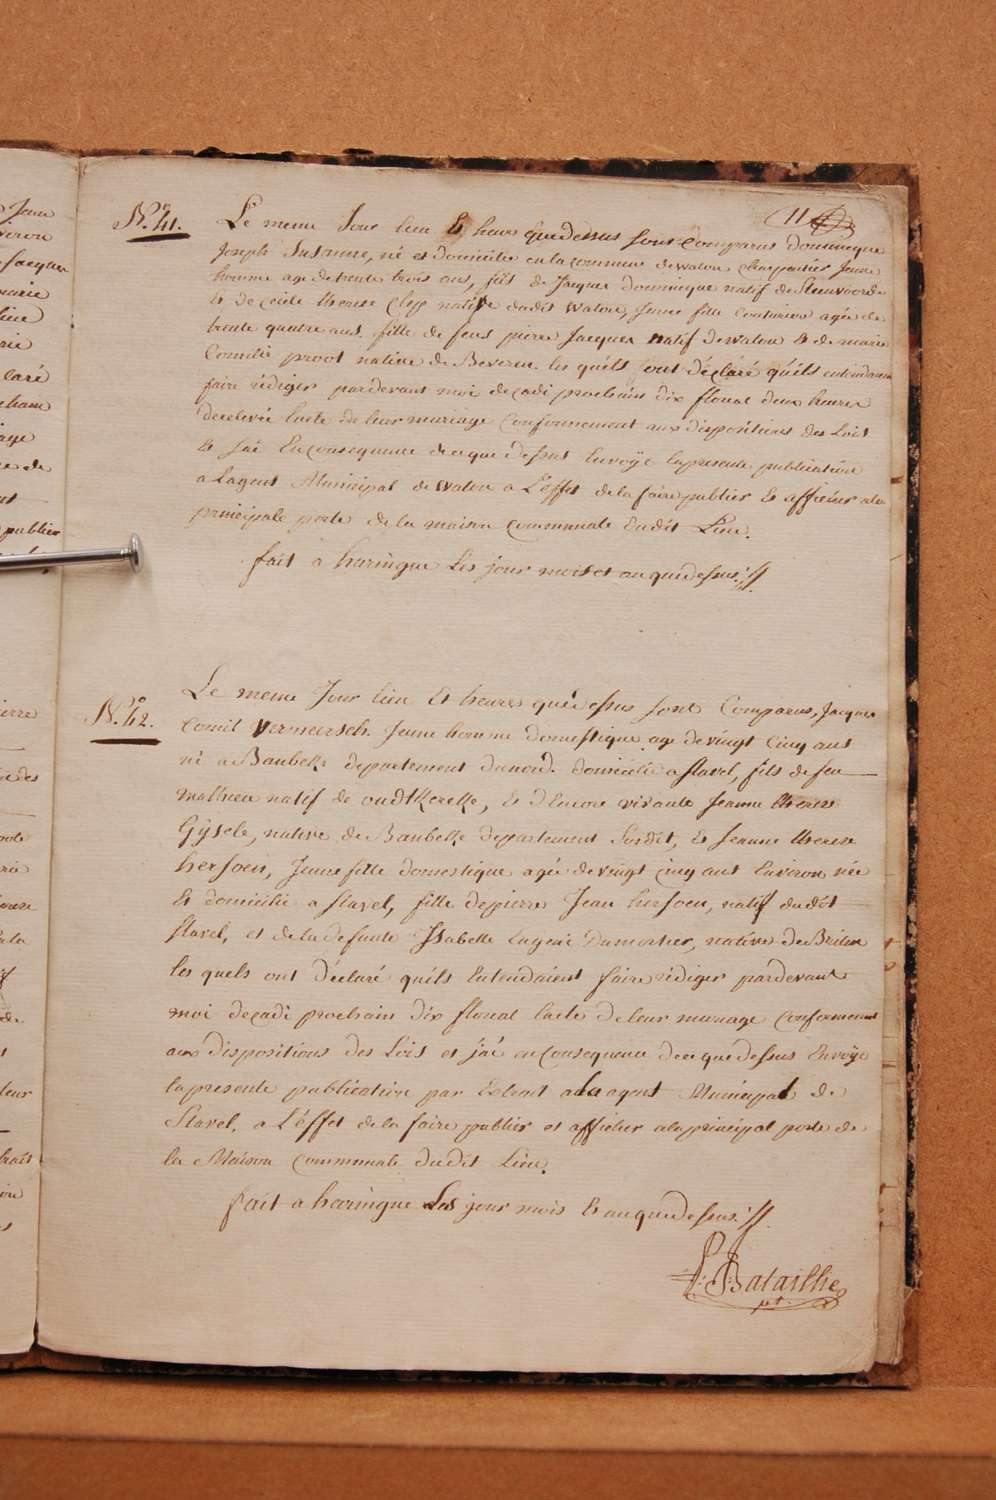 11
N.o 41.
Le meme Jour lieu Et heure que dessus sont Comparus dominique
Joseph Susanne, né et domicilie en la commune de watou Charpentier Jeune
homme age de trente trois ans, fils de Jacques Dominique natif de Steenvoorde
Et de cecile therese Clep native dudit Watou, Jeune fille Couturiere agée de
trente quatre ans. fille de feus pierre Jacques natif de watou Et de marie
Cornilie proot native de Beveren. les quéls ont déclaré quéils entendaient
faire rédiger pardevant moi decadi prochain dix floreal deux heures
de relevée lacte de leur mariage Conformement aux dispositions des Loix
Et jai En consequence de ce que dessus Envoÿé la presente publication
a Lagent Municipal de watou a L'éffet de la faire publier Et afficher a la
principale porte de la maison Communale dudit Lieu.
fait a haringue Les jour mois et an que dessus.
N.o 42.
Le meme Jour lieu Et heures que dessus sont Comparus, Jacques
Cornil Vermeersch. Jeune homme domestique age de vingt Cinq ans
né a Bambeke departement du nord. domicilié a Stavel, fils de feu
mathieu natif de oudtkerke, Et d'Encore vivante Jeanne therese
Gÿsele, native de Bambeke departement susdit, Et Jeanne therese
hersoen, Jeune fille domestique agée de vingt cinq ans Environ née
Et domicilié a Stavel, fille de pierre Jean hersoen, natif dudit
Stavel, et de la defunte Isabelle Eugenie Dumortier, native de
les quels ont déclaré quéils Entendaient faire rédiger pardevant
moi decadi prochain dix floreal lacte de leur mariage Conformement
aux dispositions des Lois et jai en Consequence de ce que dessus Envoÿé
la presente publication par Extrait a La agent Municipal de
Stavel, a L'éffet de la faire publier et afficher a la principal porte de
la Maison Communale dudit Lieu.
fait a haringue Les jour mois Et an que dessus.
Bataillie